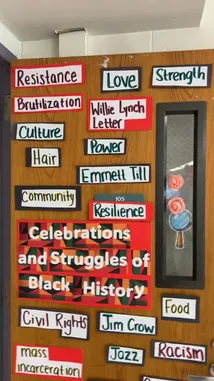 Resistance
Love
Strength
Brutilization
Willie Lynch
Letter
Culture
Power
Hair
Emmett Till
Community
105
Resilience
Celebrations
and Struggles of
Black History
Food
Civil Rights
Jim Crow
Jazz
Racism
mass
incarceration